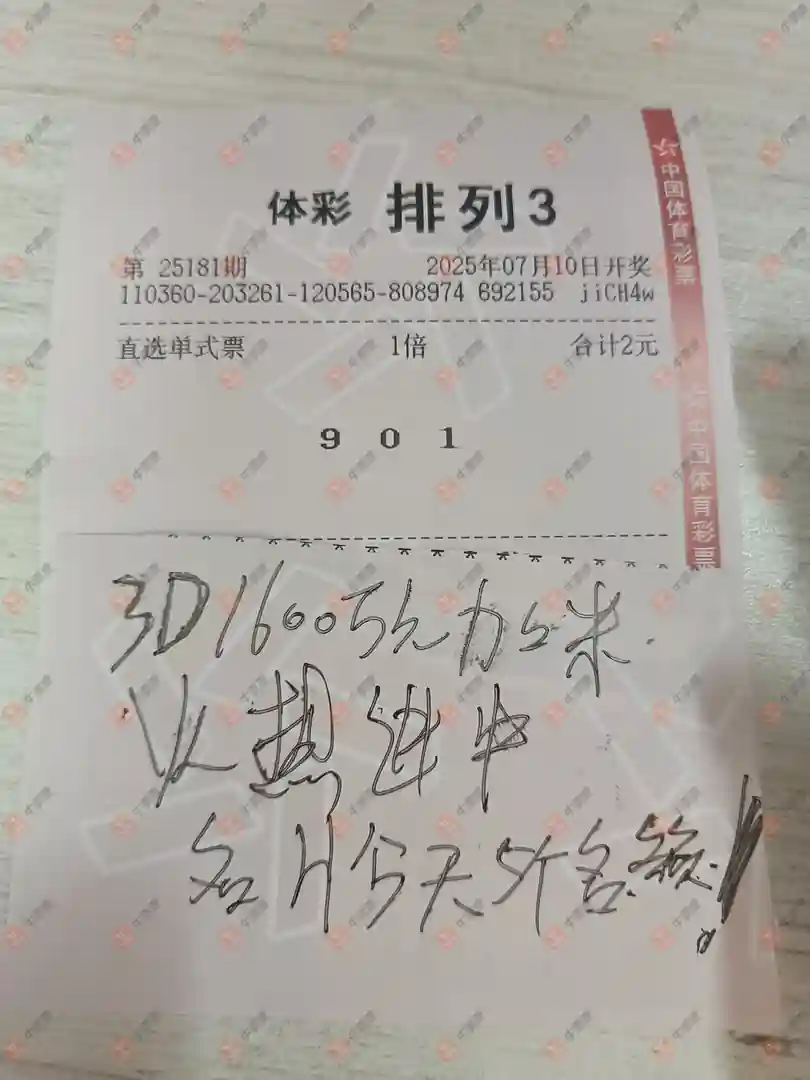 体彩 排列3
第 25181期 2025年07月10日开奖
110360-203261-120565-808974 692155 jiCH4w
直选单式票 1倍 合计2元
9 0 1
中国体育彩票
中国体育彩票
3D1600万元加上米
火热继中
名片今天5个名额!